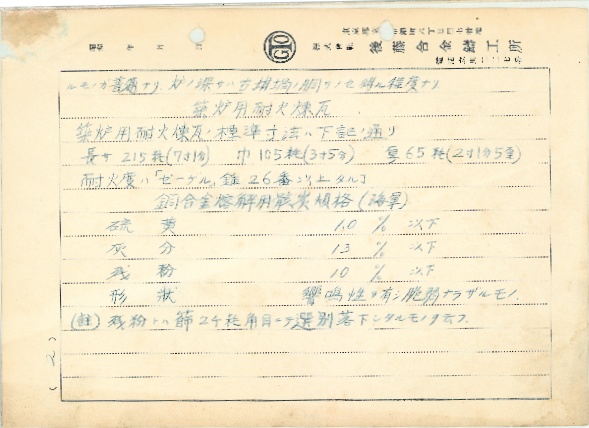 昭和 年 月 日
GTO
株式會社 後藤合金鑄工所
ルモノガ普通ナリ 炉ノ深サハ
程度ナリ
築炉用耐火煉瓦
築炉用耐火煉瓦ノ標準寸法ハ下記ノ通リ
長サ 215粍(7寸1分) 巾 105粍(3寸5分) 65粍(2寸1分5厘)
耐火度ハ「ゼーゲル」錐26番以上タル
銅合金熔解用骸炭規格(海軍)
硫黄 1.0 % 以下
灰分 13 % 以下
残粉 10 % 以下
形状 響鳴性ヲ有シ脆弱ナラザルモノ
(註) 残粉トハ篩24粍角目ニテ選別落下シタルモノヲ云フ
(2)